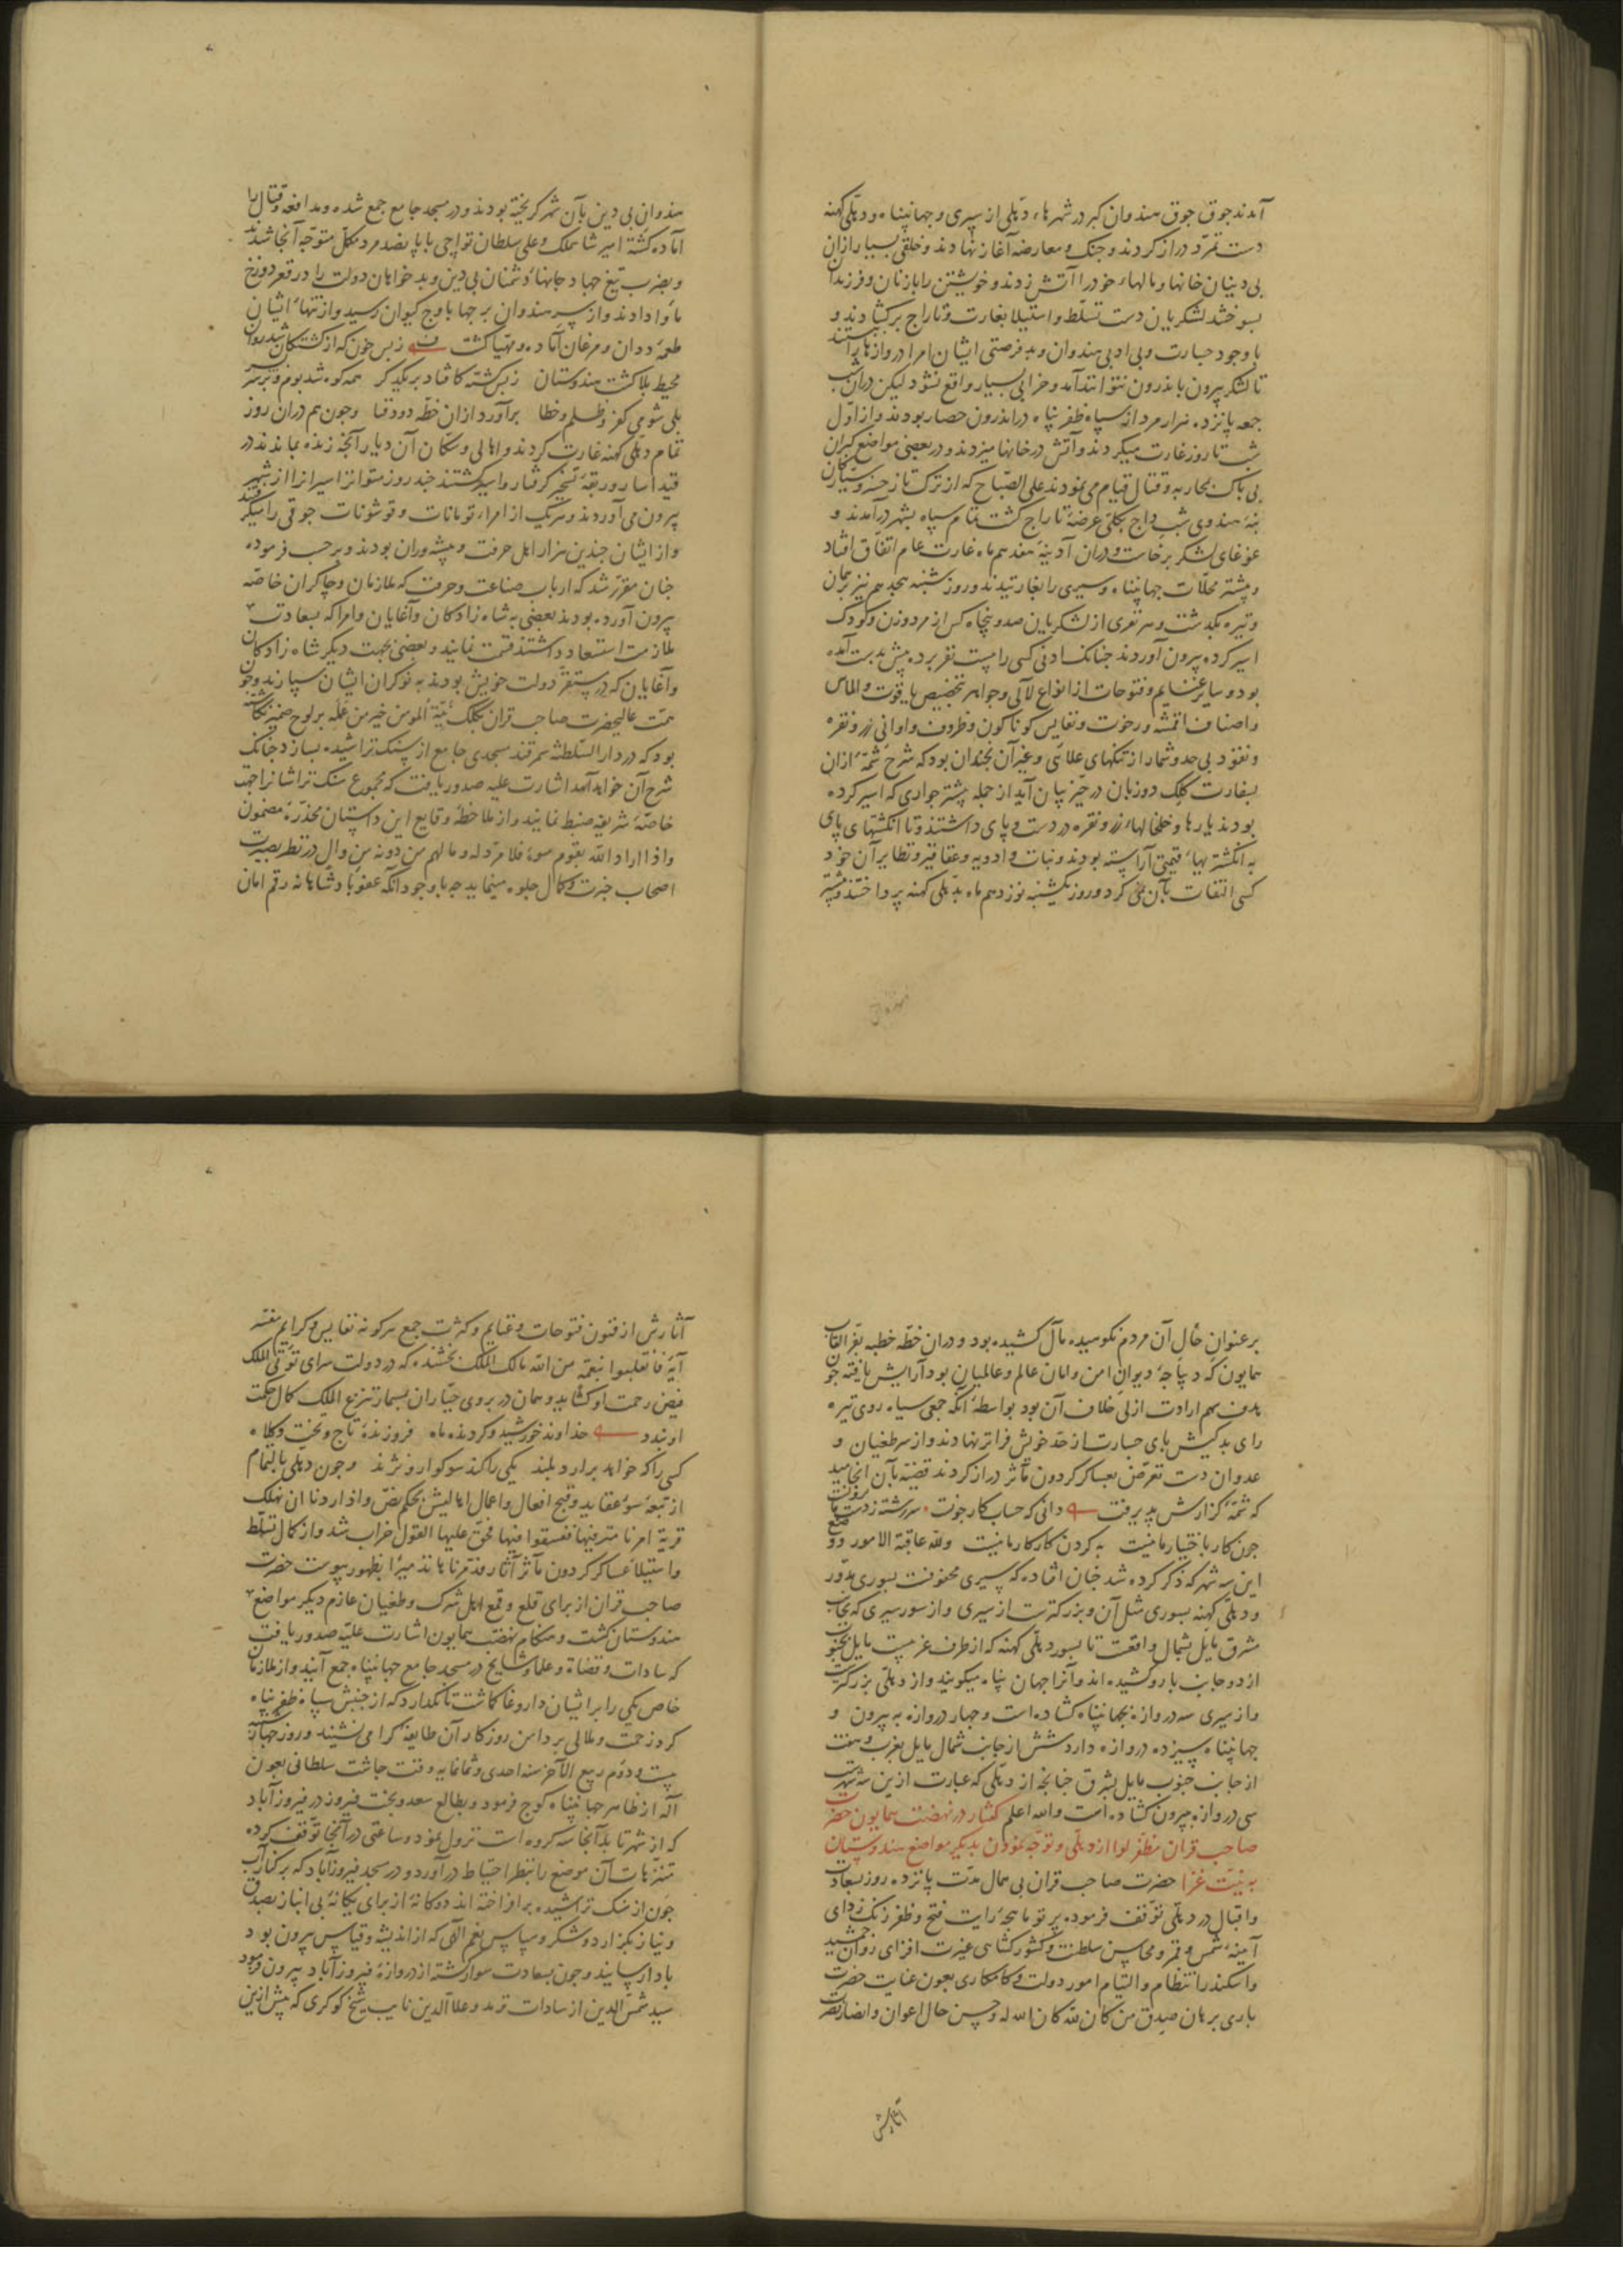 آمدند جوق جوق هندوان گبر در شهرهاء دهلی از سیری و جهانپناه و دهلی کهنه
دست تمرد دراز کردند و جنک و معارضه آغاز نهادند و خلقی بسیار از ان
بی دینان خانها و مالهاء خود را آتش زدند و خویشتن را با زنان و فرزندان
بسوختند لشکریان دست تسلط و استیلا بغارت و تاراج برکشادند و
با وجود جسارت و بی ادبی هندوان و بد فرصتی ایشان امرا دروازها را بستند
تا لشکر بیرون باندرون نتوانند آمد و خرابی بسیار واقع نشود لیکن در ان شب
جمعه پانزده هزار مرد از سپاه ظفر پناه در اندرون حصار بودند و از اول
شب تا روز غارت میکردند و آتش در خانها میزدند و در بعضی مواضع کبران
بی باک بمحاربه و قتال قیام می نمودند علی الصباح که از ترک تاز خسرو سیارکان
بنه هندوی شب داج بکلی عرضه تاراج کشت تمام سپاه بشهر درآمدند و
غوغای لشکر برخاست و دران آدینه هفدهم ماه غارت عام اتفاق افتاد
و بیشتر محلات جهانپناه و سیری را بغارتیدند و روز شنبه هجدهم نیز برهمان
وتیره بگذشت و هر نفری از لشکریان صد و پنجاه کس از مرد و زن و کودک
اسیر کرده بیرون آوردند چنانک ادنی کسی را بیست نفر برده بیش بدست آمده
بود و سایر غنایم و فتوحات از انواع لآلی و جواهر بتخصیص یاقوت و الماس
و اصناف اقمشه و رخوت و نفایس کوناکون و ظروف و اوانی زر و نقره
و نقود بی حد و شمار از تنکهای علائی و غیر آن نچندان بود که شرح شمه از ان
بسفارت کلک دو زبان در حیز بیان آید از جمله بیشتر جواری که اسیر کرده
بودند یارها و خلخالهاء زر و نقره در دست و پای داشتند و تا انکشتهای پای
به انکشتریهاء قیمتی آراسته بودند و نبات و ادویه و عقاقیر و نظایر آن خود
کسی التفات بآن نمی کرد و روز یکشنبه نوزدهم ماه بدهلی کهنه پرداختند و بیشتر
هندوان بی دین بآن شهر کریخته بودند و در مسجد جامع جمع شده و مدافعه و قتال را
آماده کشته امیر شاهملک و علی سلطان تواچی با پانصد مرد مکمل متوجه آنجا شدند
و بضرب تیغ جهاد جانهاء دشمنان بی دین و بدخواهان دولت را در قعر دوزخ
مأوا دادند و از سر هندوان برجها باوج کیوان رسید و از تنهاء ایشان
طعمه ددان و مرغان آماده و مهیا کشت زبس خون که از کشتکان شد روان
محیط بلا کشت هندوستان زبس کشته کافتاد بر یکدکر همه کوه شد بوم و بر سر بسر
بلی شومی کفر و ظلم و خطا برآورد از ان خطه دود فنا و چون هم در ان روز
تمام دهلی کهنه غارت کردند و اهالی و سکان آن دیار آنچه زنده بماندند در
قید اسار و ربقه تسخیر کرفتار و اسیر کشتند چند روز متواتر اسیرانرا از شهر
بیرون می آوردند و هریک از امراء تومانات و قوشونات جوقی را میکرفتند
و از ایشان چندین هزار اهل حرفت و پیشه وران بودند و برحسب فرموده
چنان مقرر شد که ارباب صناعت و حرفت که ملازمان و چاکران خاصه
بیرون آورده بودند بعضی به شاه زادکان و آغایان و امرا که بسعادت
ملازمت استسعاد داشتند قسمت نمایند و بعضی بجهت دیکر شاه زادکان
و آغایان که در مستقر دولت خویش بودند به نوکران ایشان سپارند و چو
همت عالیحضرت صاحب قران بکلک نیة المومن خیر من عمله بر لوح ضمیر نکاشته
بود که در دار السلطنه سمرقند مسجدی جامع از سنک تراشیده بسازد چنانک
شرح آن خواهد آمد اشارت علیه صدور یافت که مجموع سنک تراشانرا جهت
خاصه شریفه ضبط نمایند و از ملاحظه وقایع این داستان مخدره مضمون
و اذا اراد الله بقوم سوء فلا مرد له و ما لهم من دونه من وال در نظر بصیرت
اصحاب خبرت و کمال جلوه مینماید چه با وجود آنکه عفو پادشاهانه رقم امان
بر عنوان حال آن مردم نکوهیده مآل کشیده بود و در ان خطه خطبه بفر القاب
همایون که دیباجه دیوان امن و امان عالم و عالمیان بود آرایش یافته چون
هدف سهم ارادت ازلی خلاف آن بود بواسطه آنکه جمعی سیاه روی تیره
رای بدکیش پای جسارت از حد خویش فراتر نهادند و از سر طغیان و
عدوان دست تعرض بعساکر کردون مآثر دراز کردند قضیه بآن انجامید
که شمه کزارش پذیرفت دانی که حساب کار چونست سررشته ز دست ما برونست
چون کار باختیار ما نیست به کردن کار کار ما نیست ولله عاقبة الامور و وضع
این سه شهر که ذکر کرده شد چنان افتاده که سیری محفوفست بسوری مدور
و دهلی کهنه بسوری مثل آن و بزرکترست از سیری و از سور سیری که بجانب
مشرق مایل بشمال واقعست تا بسور دهلی کهنه که از طرف غربیست مایل بجنوب
از دو جانب بارو کشیده اند و آنرا جهان پناه میکویند و از دهلی بزرکترست
و از سیری سه دروازه بجهانپناه کشاده است و چهار دروازه به بیرون و
جهانپناه سیزده دروازه دارد شش از جانب شمال مایل بغرب و هفت
از جانب جنوب مایل بشرق چنانچه از دهلی که عبارت ازین سه شهرست
سی دروازه بیرون کشاده است والله اعلم کفتار در نهضت همایون حضرت
صاحب قران مظفر لوا از دهلی و توجه نمودن بدیکر مواضع هندوستان
به نیت غزا حضرت صاحب قران بی همال مدت پانزده روز بسعادت
و اقبال در دهلی توقف فرمود پرتو ماهچه رایت فتح و ظفر زنک زدای
آینه شمس و قمر و محاسن سلطنت و کشورکشایی غیرت افزای روان جمشید
و اسکندر انتظام و التیام امور دولت و کامکاری بعون عنایت حضرت
باری برهان صدق من کان لله کان الله له و حسن حال اعوان و انصار نصرت
آثارش
آثارش از فنون فتوحات و غنایم و کثرت جمع هرکونه نفایس و کرایم مفسّر
آیه فانقلبوا بنعمة من الله مالک الملک بخشنده که در دولت سرای تؤتی الملک
فیض رحمت او کشاید و همان در بروی جباران بمسمار تنزع الملک کمال حکمت
او بندد خداوند خورشید و کردنده ماه فروزنده تاج و تخت و کلاه
کسی را که خواهد برآرد بلند یکی را کند سوکوار و نژند و چون دهلی بالتمام
از تبعه سوء عقاید و قبح افعال و اعمال اهالیش بحکم نص و اذا اردنا ان نهلک
قریة امرنا مترفیها ففسقوا فیها فحق علیها القول خراب شد و از کمال تسلط
و استیلاء عساکر کردون مآثر آثار فدمرناها تدمیرا بظهور پیوست حضرت
صاحب قران از برای قلع و قمع اهل شرک و طغیان عازم دیکر مواضع
هندوستان کشت و هنکام نهضت همایون اشارت علیه صدور یافت
که سادات و قضاة و علما و مشایخ در مسجد جامع جهانپناه جمع آیند و از ملازمان
خاص یکی را بر ایشان داروغا کماشت تا نکذارد که از جنبش سپاه ظفر پناه
کرد زحمت و ملالی بر دامن روزکار آن طایفه کرامی نشیند و روز چهارشنبه
بیست و دوم ربیع الآخر سنه احدی و ثمانمایه وقت چاشت سلطانی بعون
آله از ظاهر جهانپناه کوچ فرمود و بطالع سعد و بخت فیروز در فیروزآباد
که از شهر تا بدانجا سه کروه است نزول نمود و ساعتی در آنجا توقف کرده
متنزهات آن موضع را بنظر احتیاط درآورد و در مسجد فیروزآباد که بر کنار آب
جون از سنک تراشیده برافراخته اند دوکانه از برای یکانه بی انباز بصدق
و نیاز بکزارد و شکر و سپاس نعم الهی که از اندیشه و قیاس بیرون بود
بادا رسانید و چون بسعادت سوار شده از دروازه فیروزآباد بیرون فرمود
سید شمس الدین از سادات ترمد و علا الدین نایب شیخ کوکری که پیش ازین